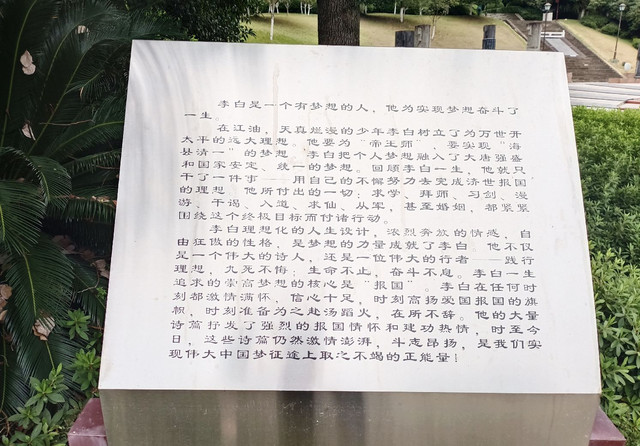 李白是一个有梦想的人，他为实现梦想奋斗了
一生。
在江油，天真烂漫的少年李白树立了为万世开
太平的远大理想。他要为“帝王师”，要实现“海
县清一”的梦想。李白把个人梦想融入了大唐强盛
和国家安定、统一的梦想。回顾李白一生，他就只
干了一件事——用自己的不懈努力去完成济世报国
的理想。他所付出的一切：求学、拜师、习剑、漫
游、干谒、入道、求仙、从军，甚至婚姻，都紧紧
围绕这个终极目标而付诸行动。
李白理想化的人生设计，浓烈奔放的情感，自
由狂傲的性格，是梦想的力量成就了李白。他不仅
是一个伟大的诗人，还是一位伟大的行者——践行
理想，九死不悔；生命不止，奋斗不息。李白一生
追求的崇高梦想的核心是“报国”。李白在任何时
刻都激情满怀，信心十足，时刻高扬爱国报国的旗
帜，时刻准备为之赴汤蹈火，在所不辞。他的大量
诗篇抒发了强烈的报国情怀和建功热情，时至今
日，这些诗篇仍然激情澎湃，斗志昂扬，是我们实
现伟大中国梦征途上取之不竭的正能量！